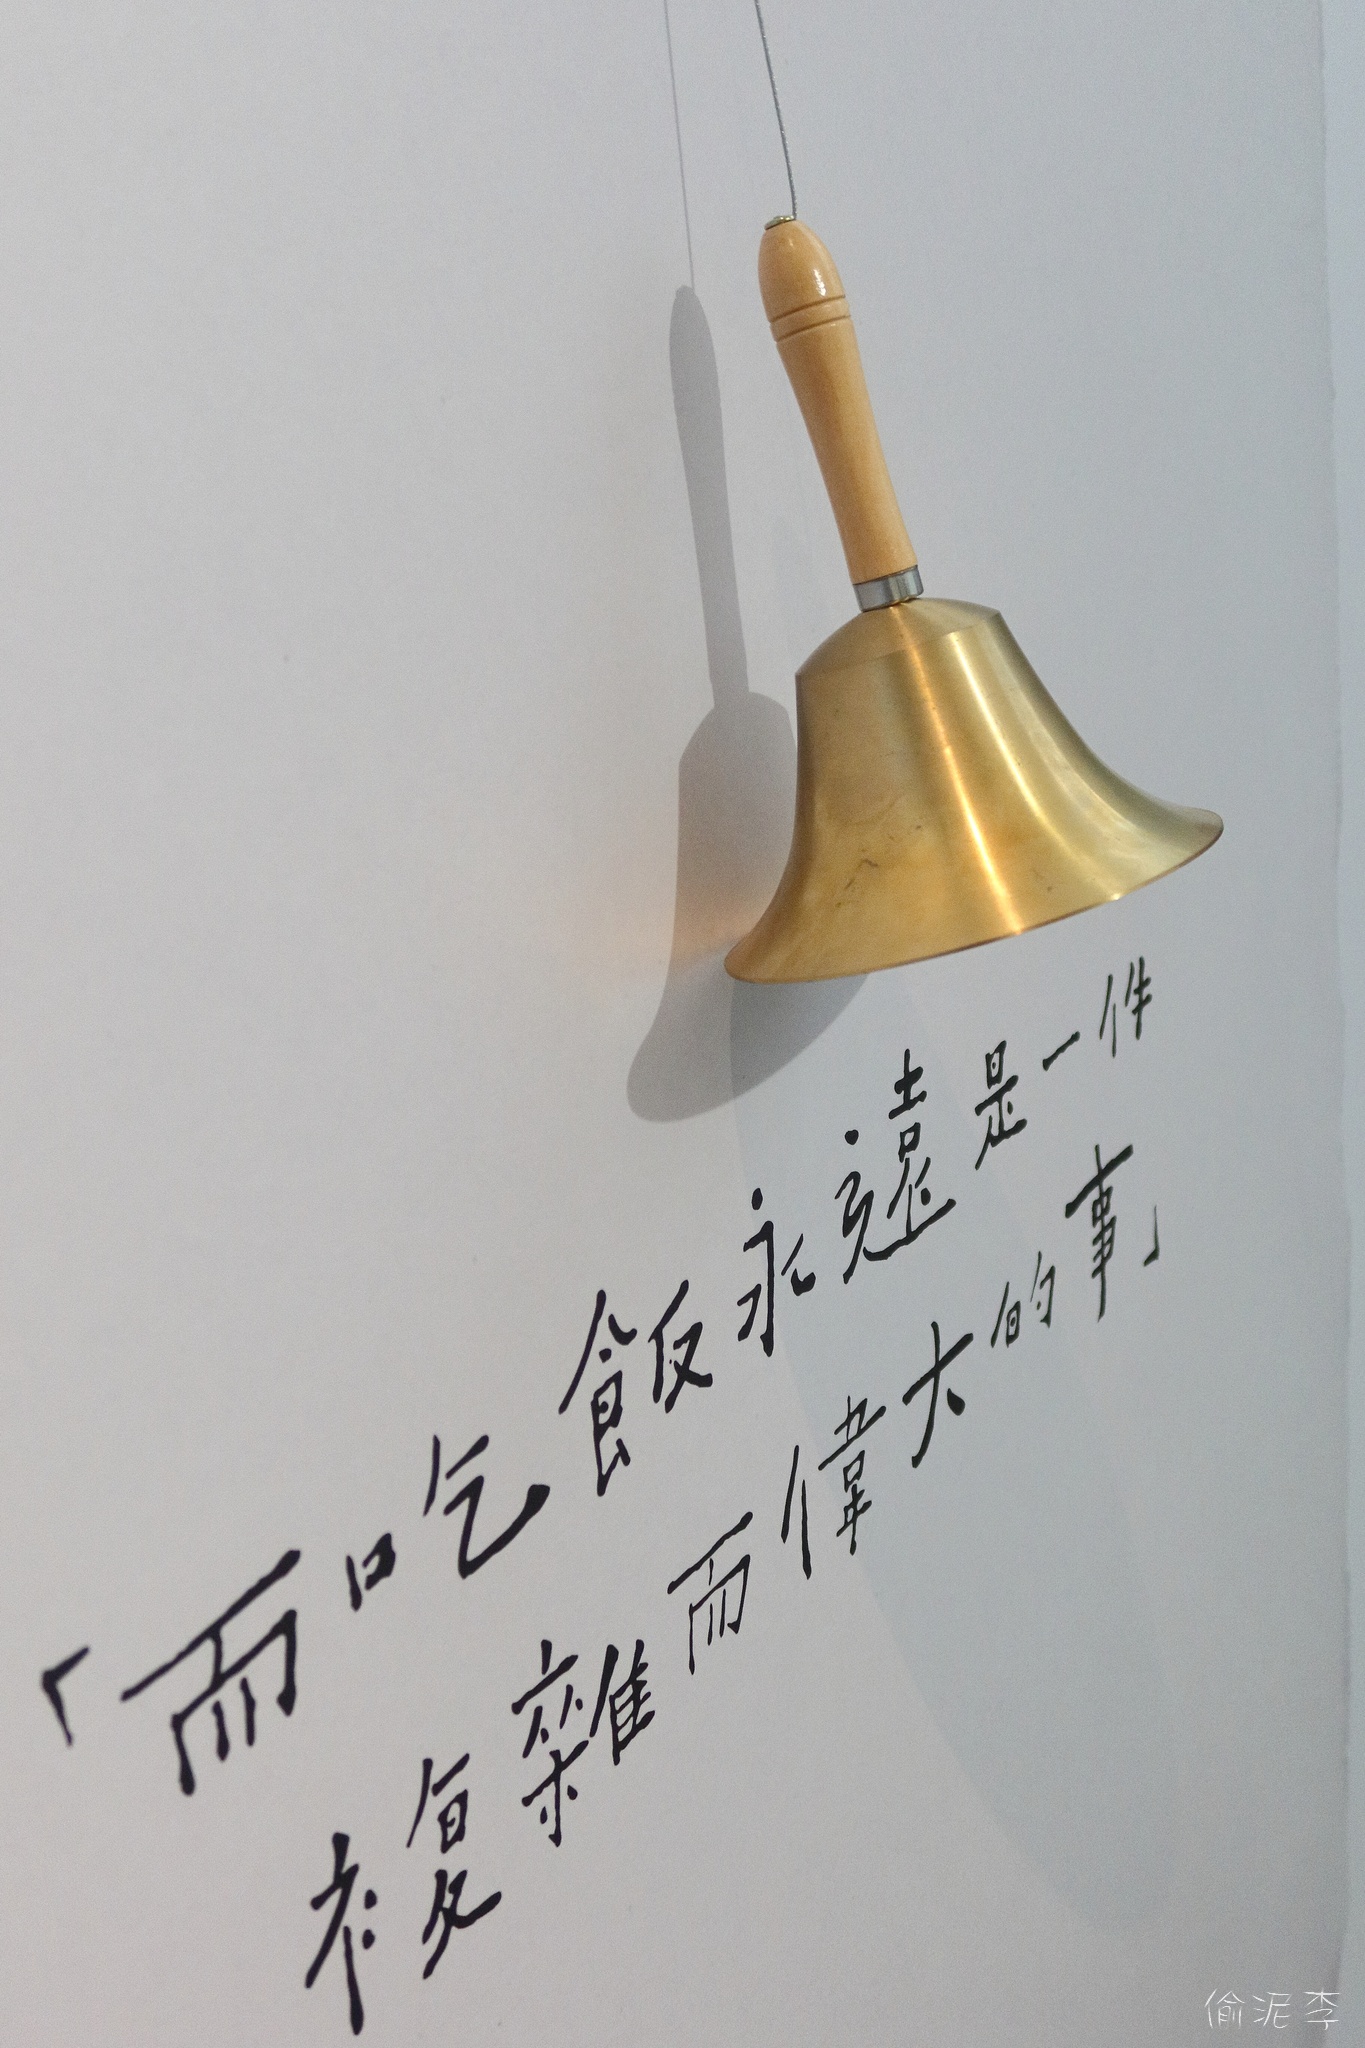 「而吃飯永遠是一件
複雜而偉大的事」
偷泥李